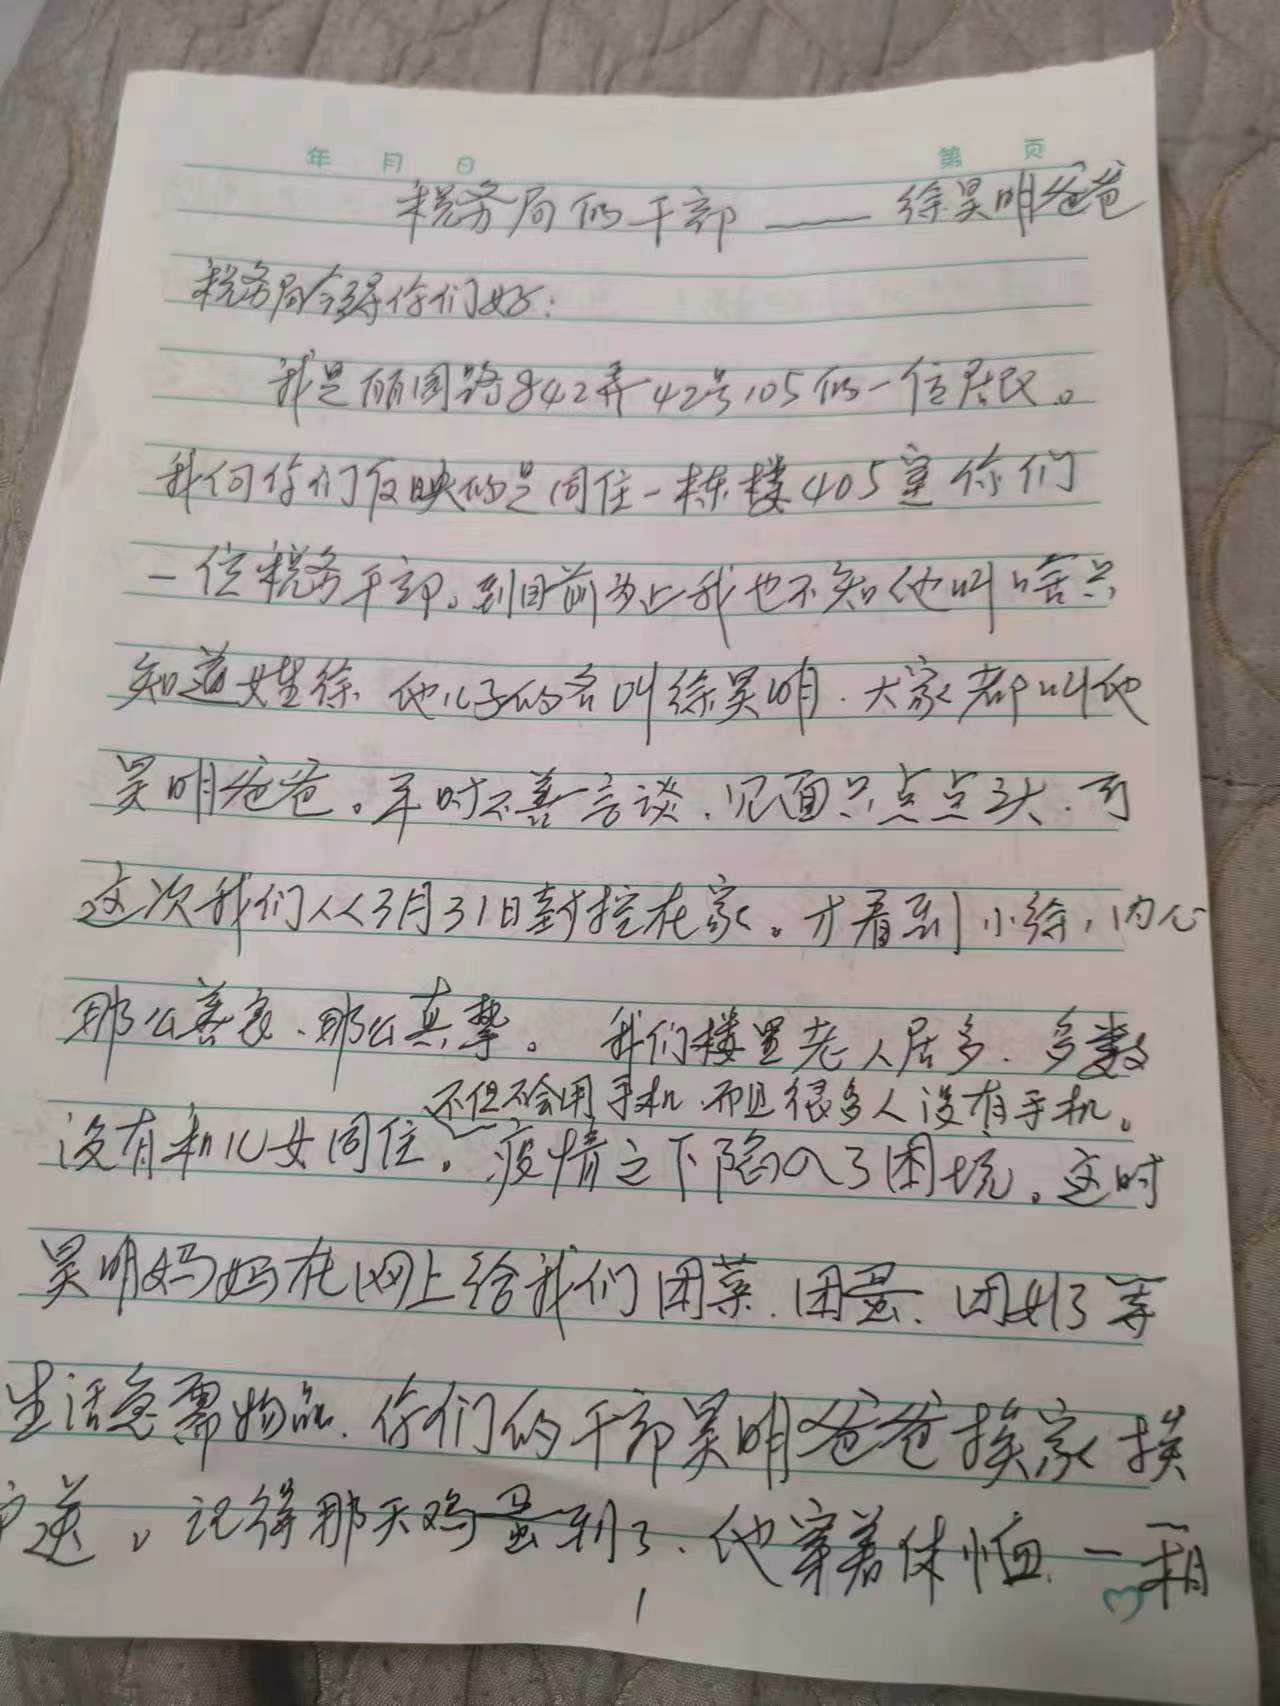 年 月 日 第 页
税务局的干部 —— 徐昊明爸爸
税务局领导你们好：
我是丽园路842弄42号105的一位居民。
我向你们反映的是同住一栋楼405室你们
一位税务干部。到目前为止我也不知他叫啥只
知道姓徐 他儿子的名叫徐昊明.大家都叫他
昊明爸爸。平时不善言谈.见面只点点头.可
这次我们从3月31日封控在家。才看到小徐,内心
那么善良.那么真挚。我们楼里老人居多.多数
不但不会用手机.而且很多人没有手机。
没有和儿女同住。疫情之下陷入了困境。这时
昊明妈妈在网上给我们团菜.团蛋.团奶等
生活急需物品.你们的干部昊明爸爸挨家挨
户送。记得那天鸡蛋到了.他穿着休恤.一箱
1